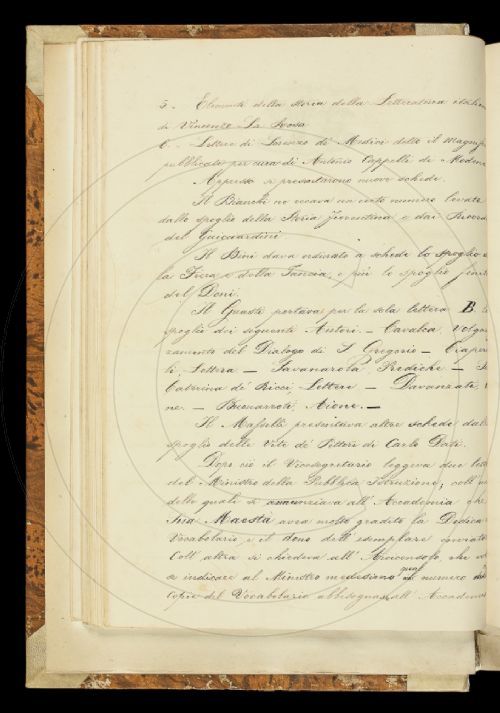 5. Elementi della storia della Letteratura italiana
di Vincenzo La Rosa
6. Lettere di Lorenzo de' Medici detto il Magnifi
pubblicate per cura di Antonio Cappelli di Modena
Appresso si presentarono nuove schede.
Il Bianchi ne recava un certo numero levate
dallo spoglio della Storia Fiorentina e dai Ricordi
del Guicciardini
Il Bini dava ordinato a schede lo spoglio
la Fiera e della Tancia, e più lo spoglio
del Doni.
Il Guasti portava per la sola lettera B
spoglio dei seguenti Autori. — Cavalca, Volga
zamento del Dialogo di S. Gregorio —
Lettera — Savanarola, Prediche — S
Caterina de' Ricci, Lettere — Davanzati,
— Buonarroti, Aione. —
Il presentava altre schede dallo
spoglio delle Vite de' Pittori di Carlo Dati.
Dopo ciò il Vicesegretario leggeva due lett
del Ministro della Pubblica Istruzione; coll'
delle quali si annunziava all'Accademia che
Sua Maestà avea molto gradito la Dedica
Vocabolario e il dono dell'esemplare inviato
Coll'altra si chiedeva all'Arciconsolo, che
a indicare al Ministro medesimo qual numero
Copie del Vocabolario abbisognas all'Accademia